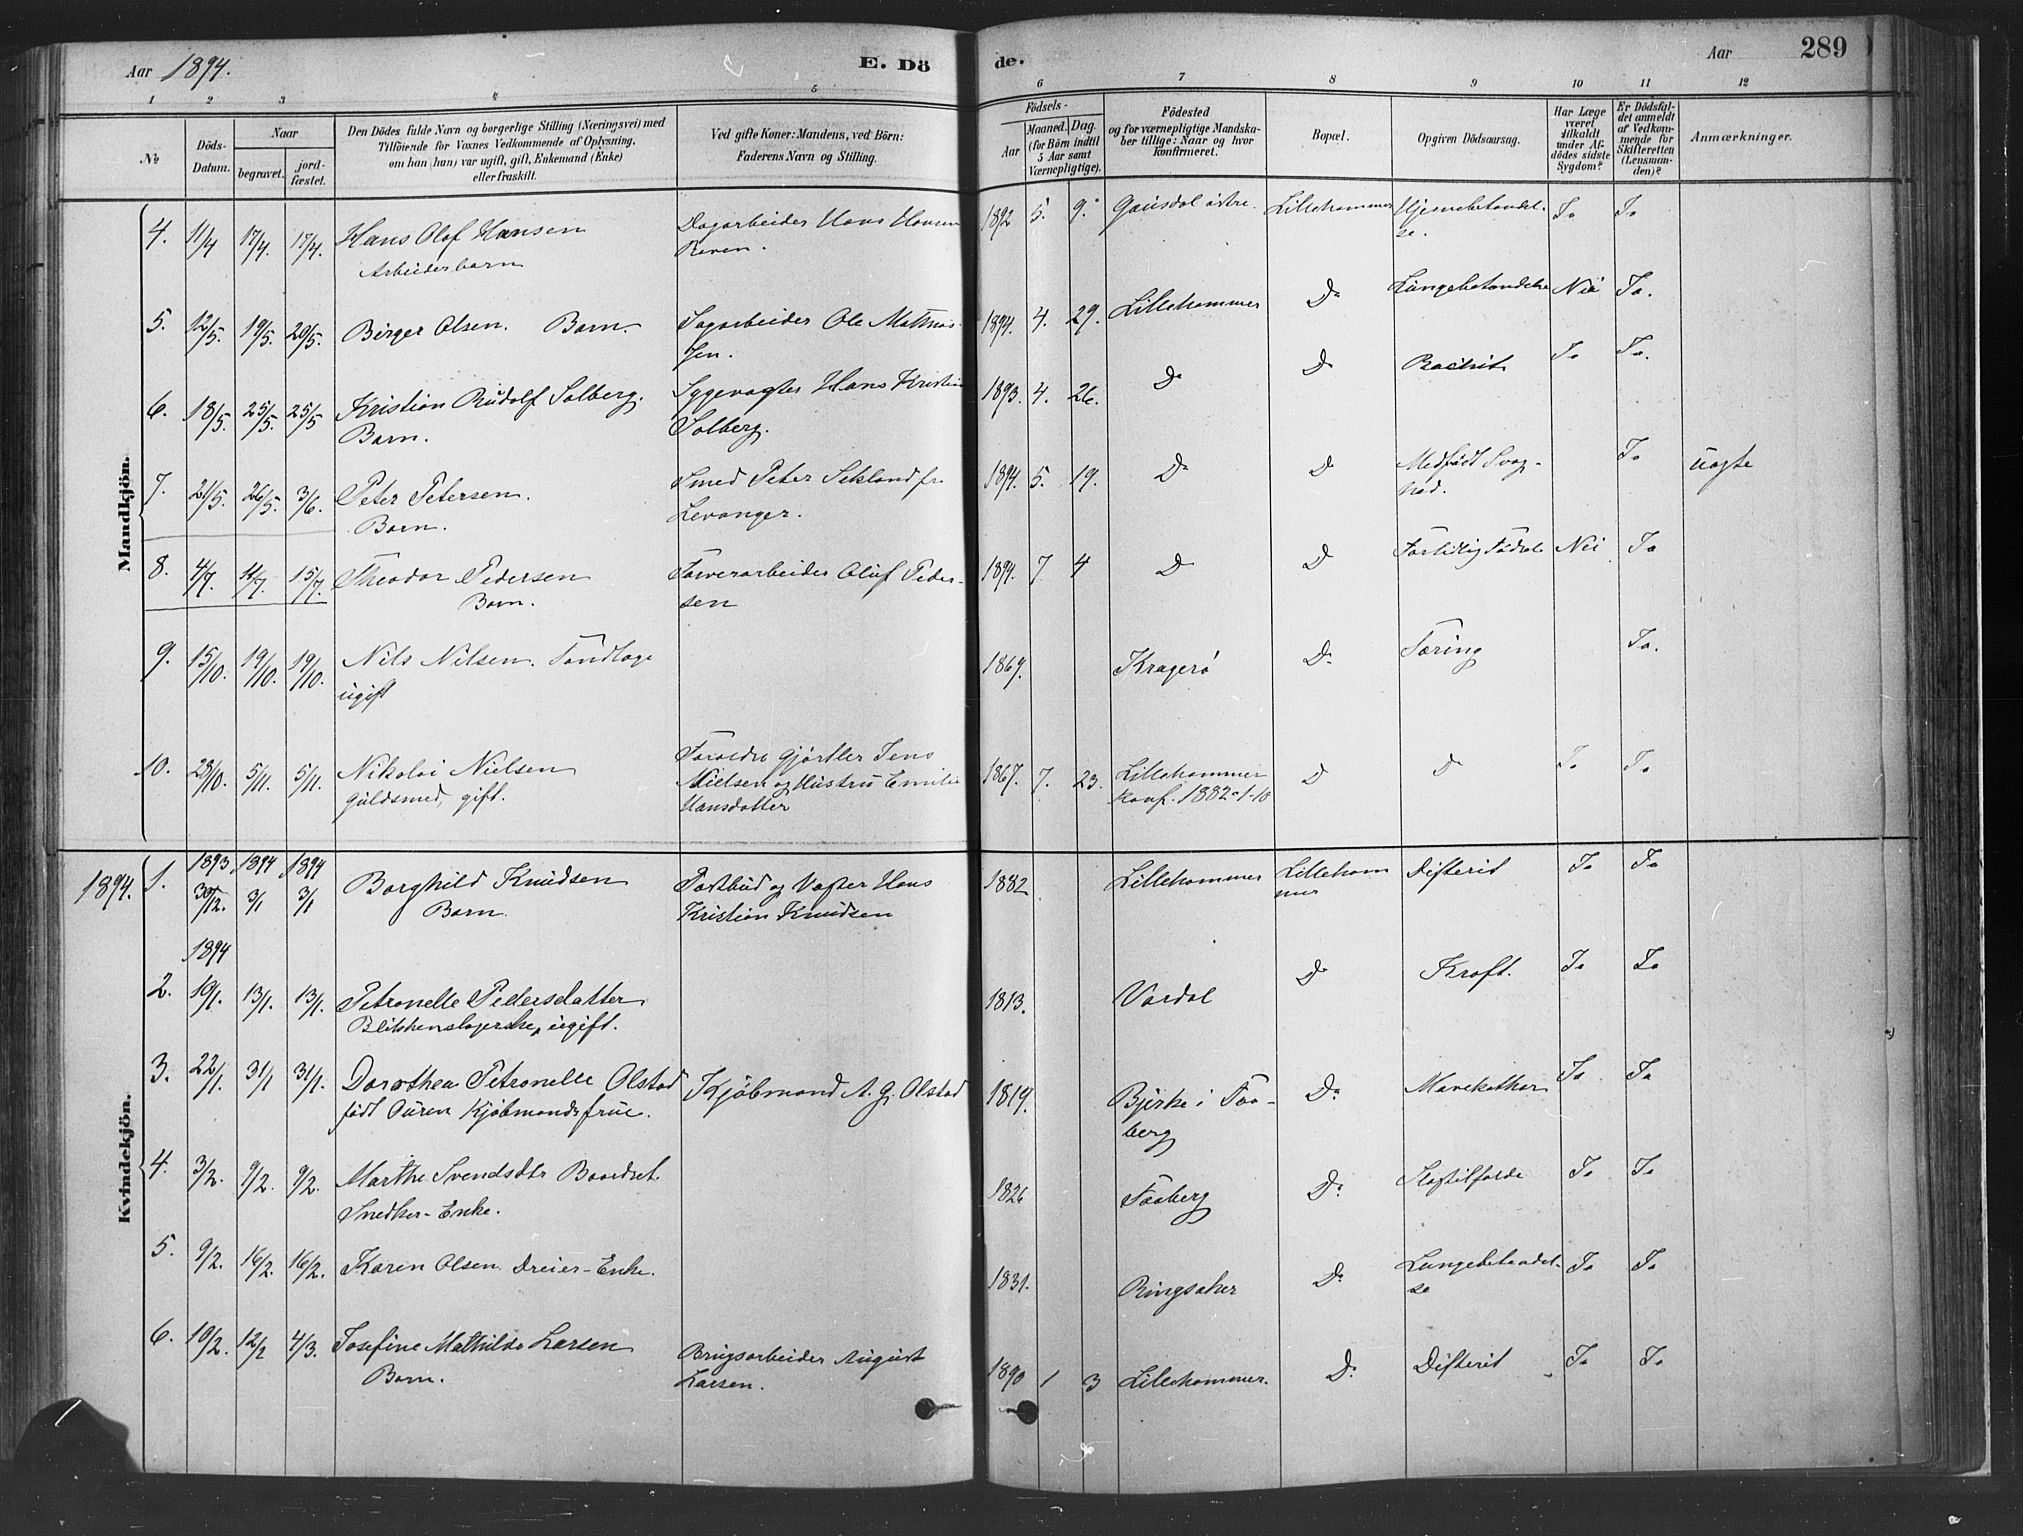 Aar 1894. E. Dö de. Aar 289
1 2 3 4 5 6 7 8 9 10 11 12
№
Döds-Datum.
Naar
begravet. jordfæstet.
Den Dödes fulde Navn og borgerlige Stilling (Næringsvei) med
Tilföiende for Voxnes Vedkommende af Oplysning,
om han (hun) var ugift, gift, Enkemand (Enke)
eller fraskilt.
Ved gifte Koner: Mandens, ved Börn:
Faderens Navn og Stilling.
Födsels-
Aar Maaned. Dag.
(for Börn indtil
5 Aar samt
Værnepligtige).
Födested
og for værnepligtige Mandska-
ber tillige: Naar og hvor
konfirmeret.
Bopæl.
Opgiven Dödsaarsag.
Har Læge
været
tilkaldt
under Af-
dödes sidste
Sygdom?
Er Dödsfal-
det anmeldt
af Vedkom-
mende for
Skifteretten
(Lensman-
den)?
Anmærkninger.
Mandkjön.
4. 11/4 17/4. 17/4. Hans Olaf Hansen Dagarbeider Hans Hansen 1892 5. 9. Gausdal östre. Lillehammer Hjernebetændel- Ja Ja
Arbeiderbarn se.
5. 12/5. 19/5. 20/5. Birger Olsen. Barn. Dagarbeider Ole Mathias- 1894. 4. 29. Lillehammer Do Lungebetændelse Nei Ja.
sen.
6. 18/5. 25/5. 25/5 Kristian Rudolf Solberg. Sygevogter Hans Kristian 1893. 4. 26. Do Do Rachit Ja Ja.
Barn. Solberg.
7. 21/5. 26/5. 3/6. Peter Petersen. Smed Peter fr. 1894. 5. 19. Do Do Medfödt Svag- Ja uægte
Barn. Levanger. hed.
8. 4/7. 11/7. 15/7. Theodor Pedersen Farverarbeider Oluf Peder- 1894. 7 4 Do Do Fortidlig Födsel Nei Ja
Barn. sen
9. 15/10. 19/10. 19/10. Nils Nilsen. Tandlæge 1869. Kragerö Do Tæring Ja.
ugift
10. 28/10. 5/11. 5/11. Nikolai Nielsen Forældre Gjørtler Jens 1867. 7. 23. Lillehammer Do Do Ja Ja
Guldsmed, gift. Nielsen og Hustru Emilie konf. 1882-1-10
Hansdatter
Kvindekjön.
1894. 1. 1893 1894 1894
30/12. 3/1 3/1 Borghild Knudsen Postbud og Vagter Hans 1882 Lillehammer Lilleham Difterit Ja Ja
Barn Kristian Knudsen mer
1894
2. 10/1. 13/1. 13/1. Petronelle Pedersdatter 1813. Vardal Do Kræft. Ja Ja
Blikkenslagerske, ugift.
3. 22/1. 31/1 31/1. Dorothea Petronelle Olstad Kjøbmand A. G. Olstad 1819. Bjerke i Faa- Do Mavekathar Ja Ja
født Buren Kjøbmandsfrue. berg
4. 3/2. 9/2. 9/2. Marthe Svendsdtr Baardset. 1826 Faaberg Do Slagtilfælde Ja Ja
Snedker-Enke.
5. 9/2. 16/2. 16/2. Karen Olsen. Dreier-Enke. 1831. Ringsaker Do Lungebetændel- Ja Ja
se
6. 10/2. 12/2 4/3. Josefine Mathilde Larsen Brugsarbeider August 1890 1 3 Lillehammer. Do Difterit Ja Ja
Barn. Larsen.